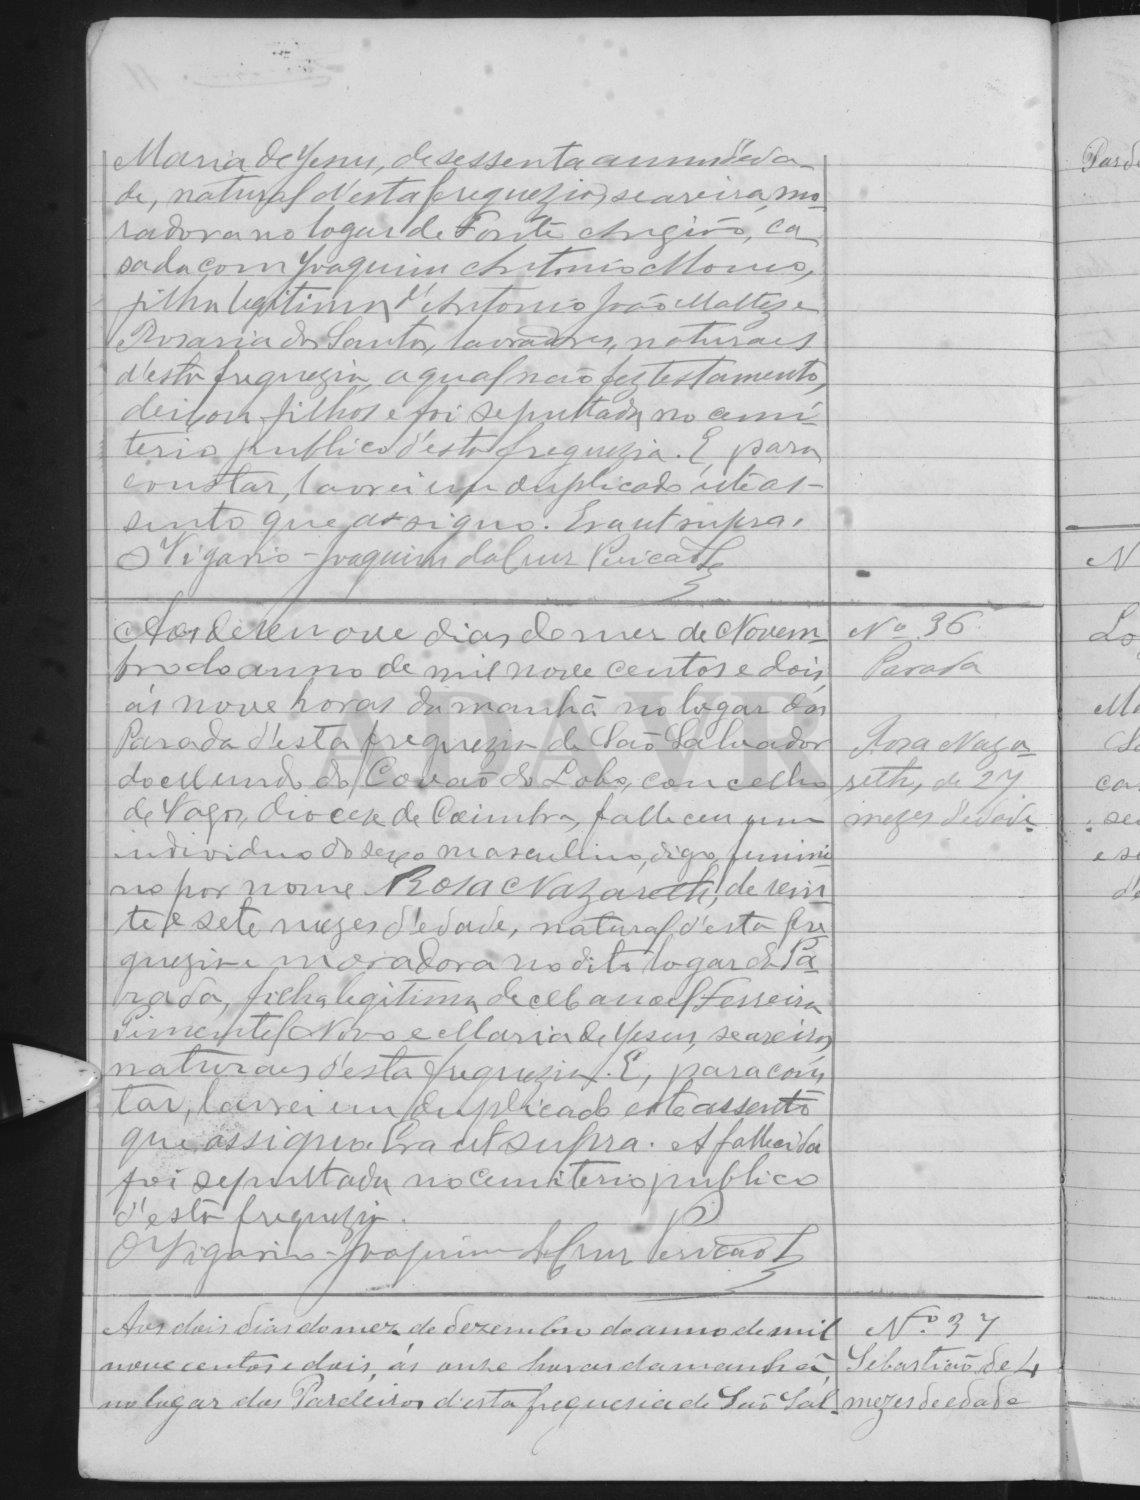 Maria de Jesus, de sessenta annos d'eda-
de, natural d'esta freguezia, seareira, mo-
radora no logar de Fonte d'Angião, ca
sada com Joaquim Antonio
filha legitima d'Antonio João Maltez e
Rosaria dos Santos, lavradores, naturaes
d'esta freguezia, a qual não fez testamento,
deixou filhos e foi sepultada no cemi-
terio publico d'esta freguezia. E para
constar, lavrei em duplicado este as-
sento que assigno. Era ut supra.
O Vigario - Joaquim da Cruz Pericão
Aos dezenove dias do mez de Novem-
bro do anno de mil nove centos e dois
ás nove horas da manhã no logar da
Parada d'esta freguezia de São Salvador
do Mundo do Covão do Lobo, concelho
de Vagos, diocese de Coimbra, falleceu um
individuo do sexo masculino, digo, femini-
no por nome Rosa Nazareth, de vin-
te e sete mezes d'edade, natural d'esta fre-
guezia e moradora no dito logar da Pa-
rada, filha legitima de Manoel Ferreira
Pimentel Novo e Maria de Jesus, seareiros
naturaes d'esta freguezia. E, para cons-
tar, lavrei em duplicado este assento
que assigno. Era ut supra. A fallecida
foi sepultada no cemiterio publico
d'esta freguezia.
O Vigario - Joaquim da Cruz Pericão
Nº 36
Parada
Rosa Naza-
reth, de 27
mezes d'edade
Aos dois dias do mez de dezembro do anno de mil
nove centos e dois, ás onze horas da manhã,
no lugar dos Pardeiros d'esta freguesia de São Sal-
Nº 37
Sebastião, de 4
mezes de edade
ADAVR